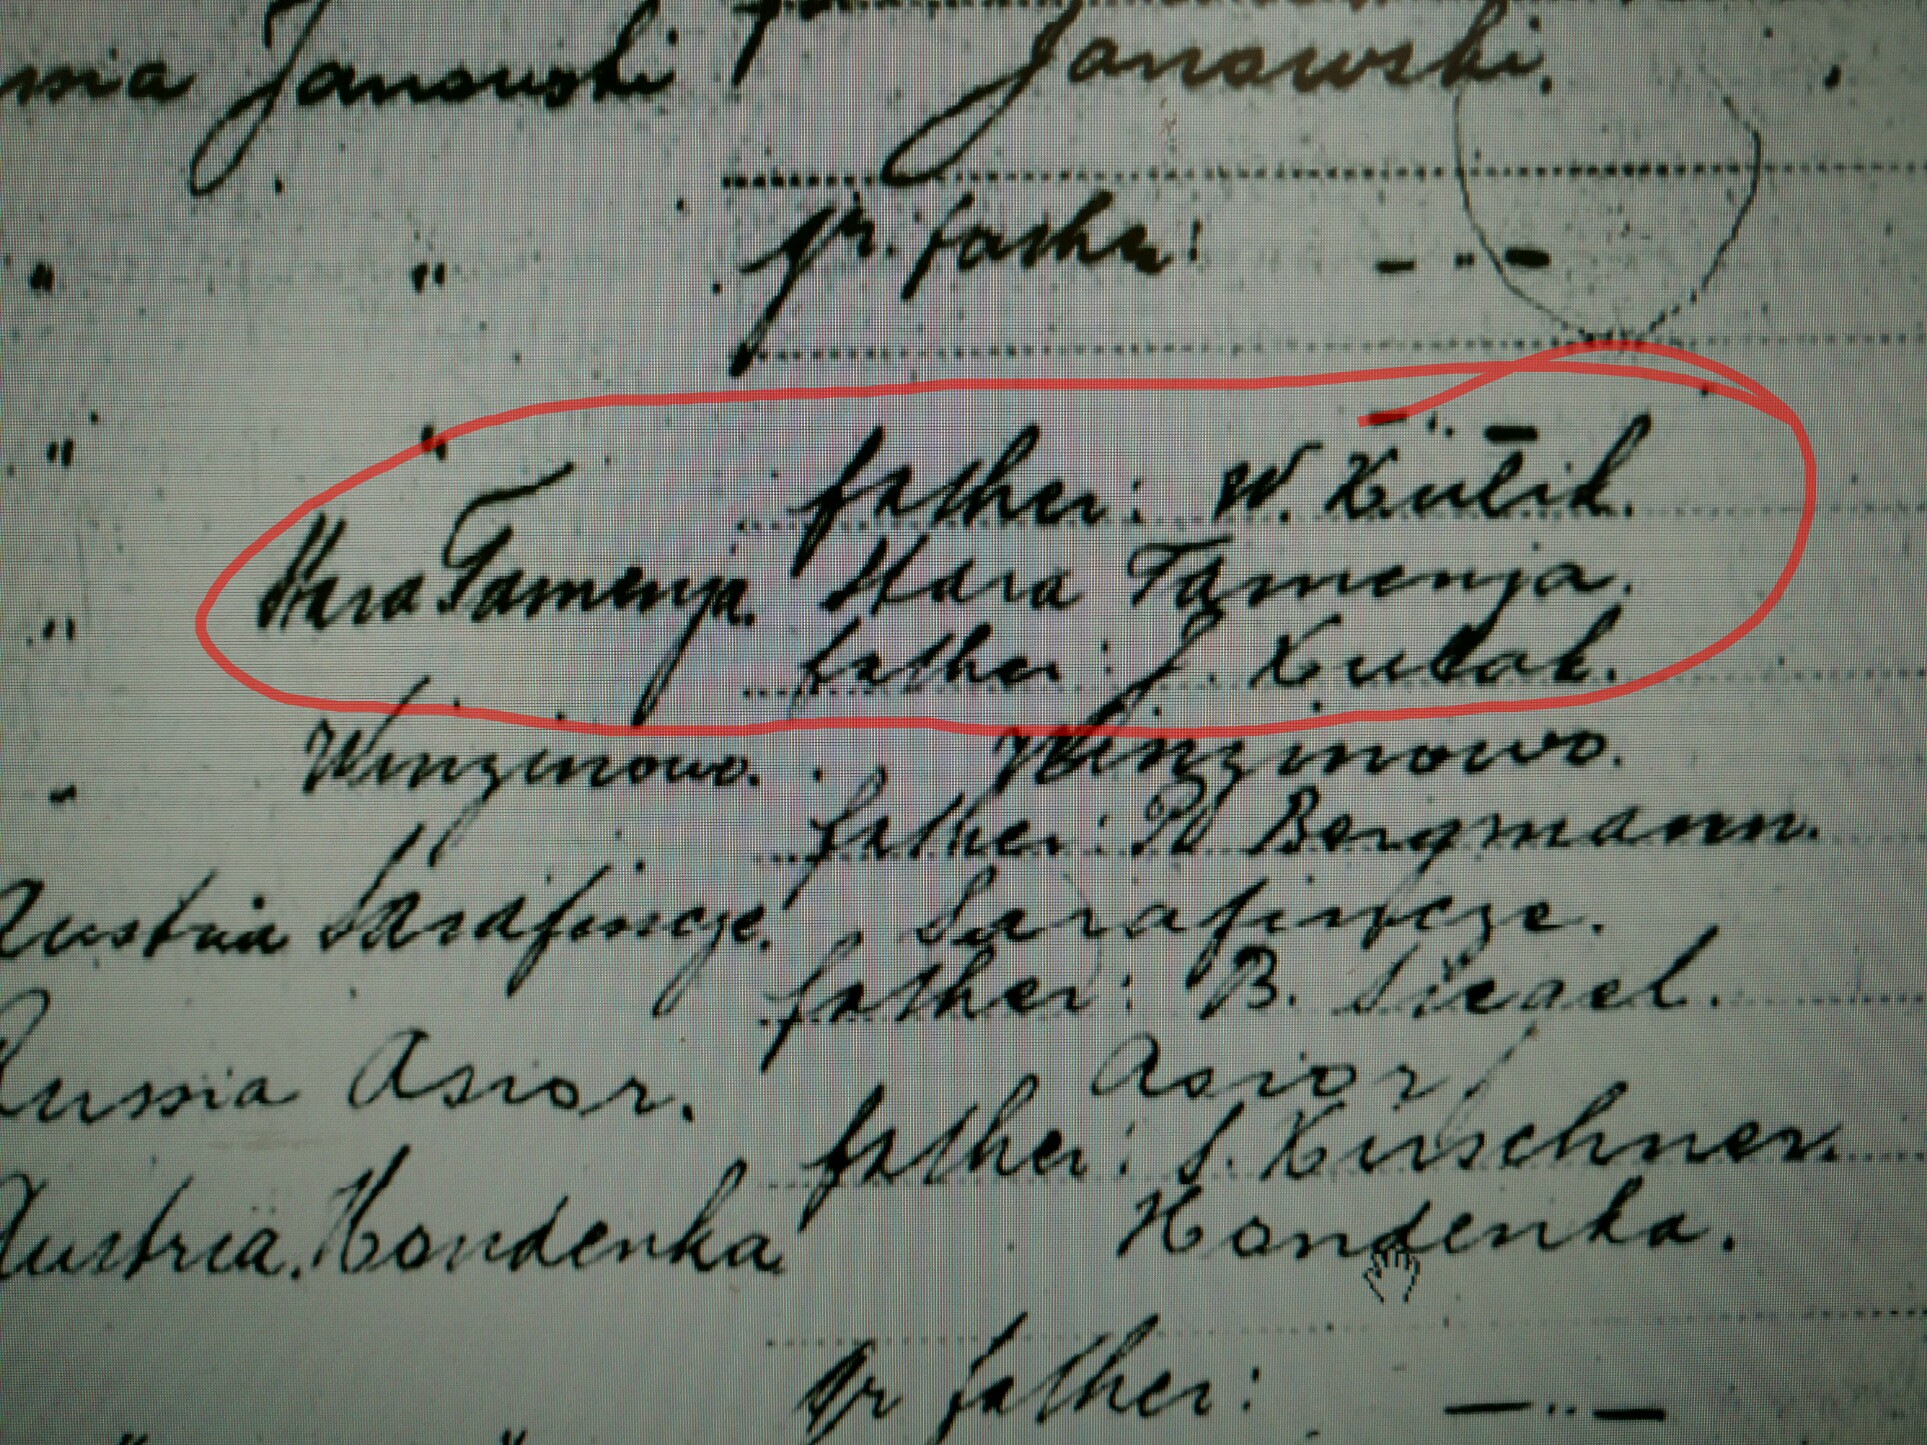 Janowski Janowski.
" " gr. father: - " -
" " - " -
father: W. Kulik.
" Stara Tamenja. Stara Tamenja.
father: J. Kulak.
" Winzinowo. Winzinowo.
father: W Bergmann.
Austria Sarafincze. Sarafincze.
father: B. Siegel.
Russia Asior. Asior
father: S. Kirschner.
Austria. Hondenka Hondenka.
gr father: - " -
" "